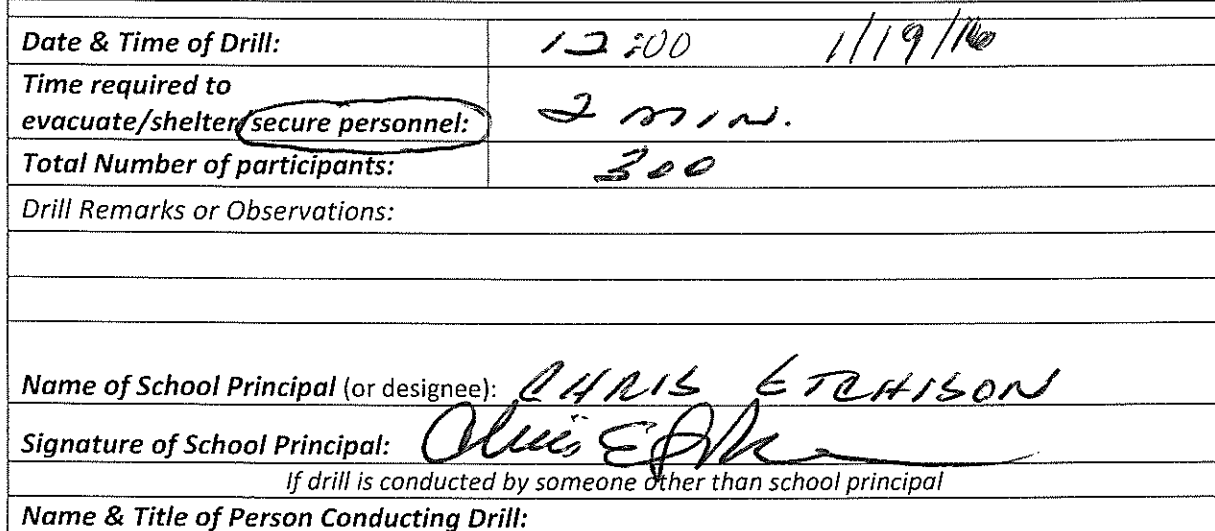 Date & Time of Drill: 12:00 1/19/16
Time required to
evacuate/shelter/secure personnel: 2 MIN.
Total Number of participants: 300
Drill Remarks or Observations:
Name of School Principal (or designee): CHRIS ETCHISON
Signature of School Principal: Chris
If drill is conducted by someone other than school principal
Name & Title of Person Conducting Drill: